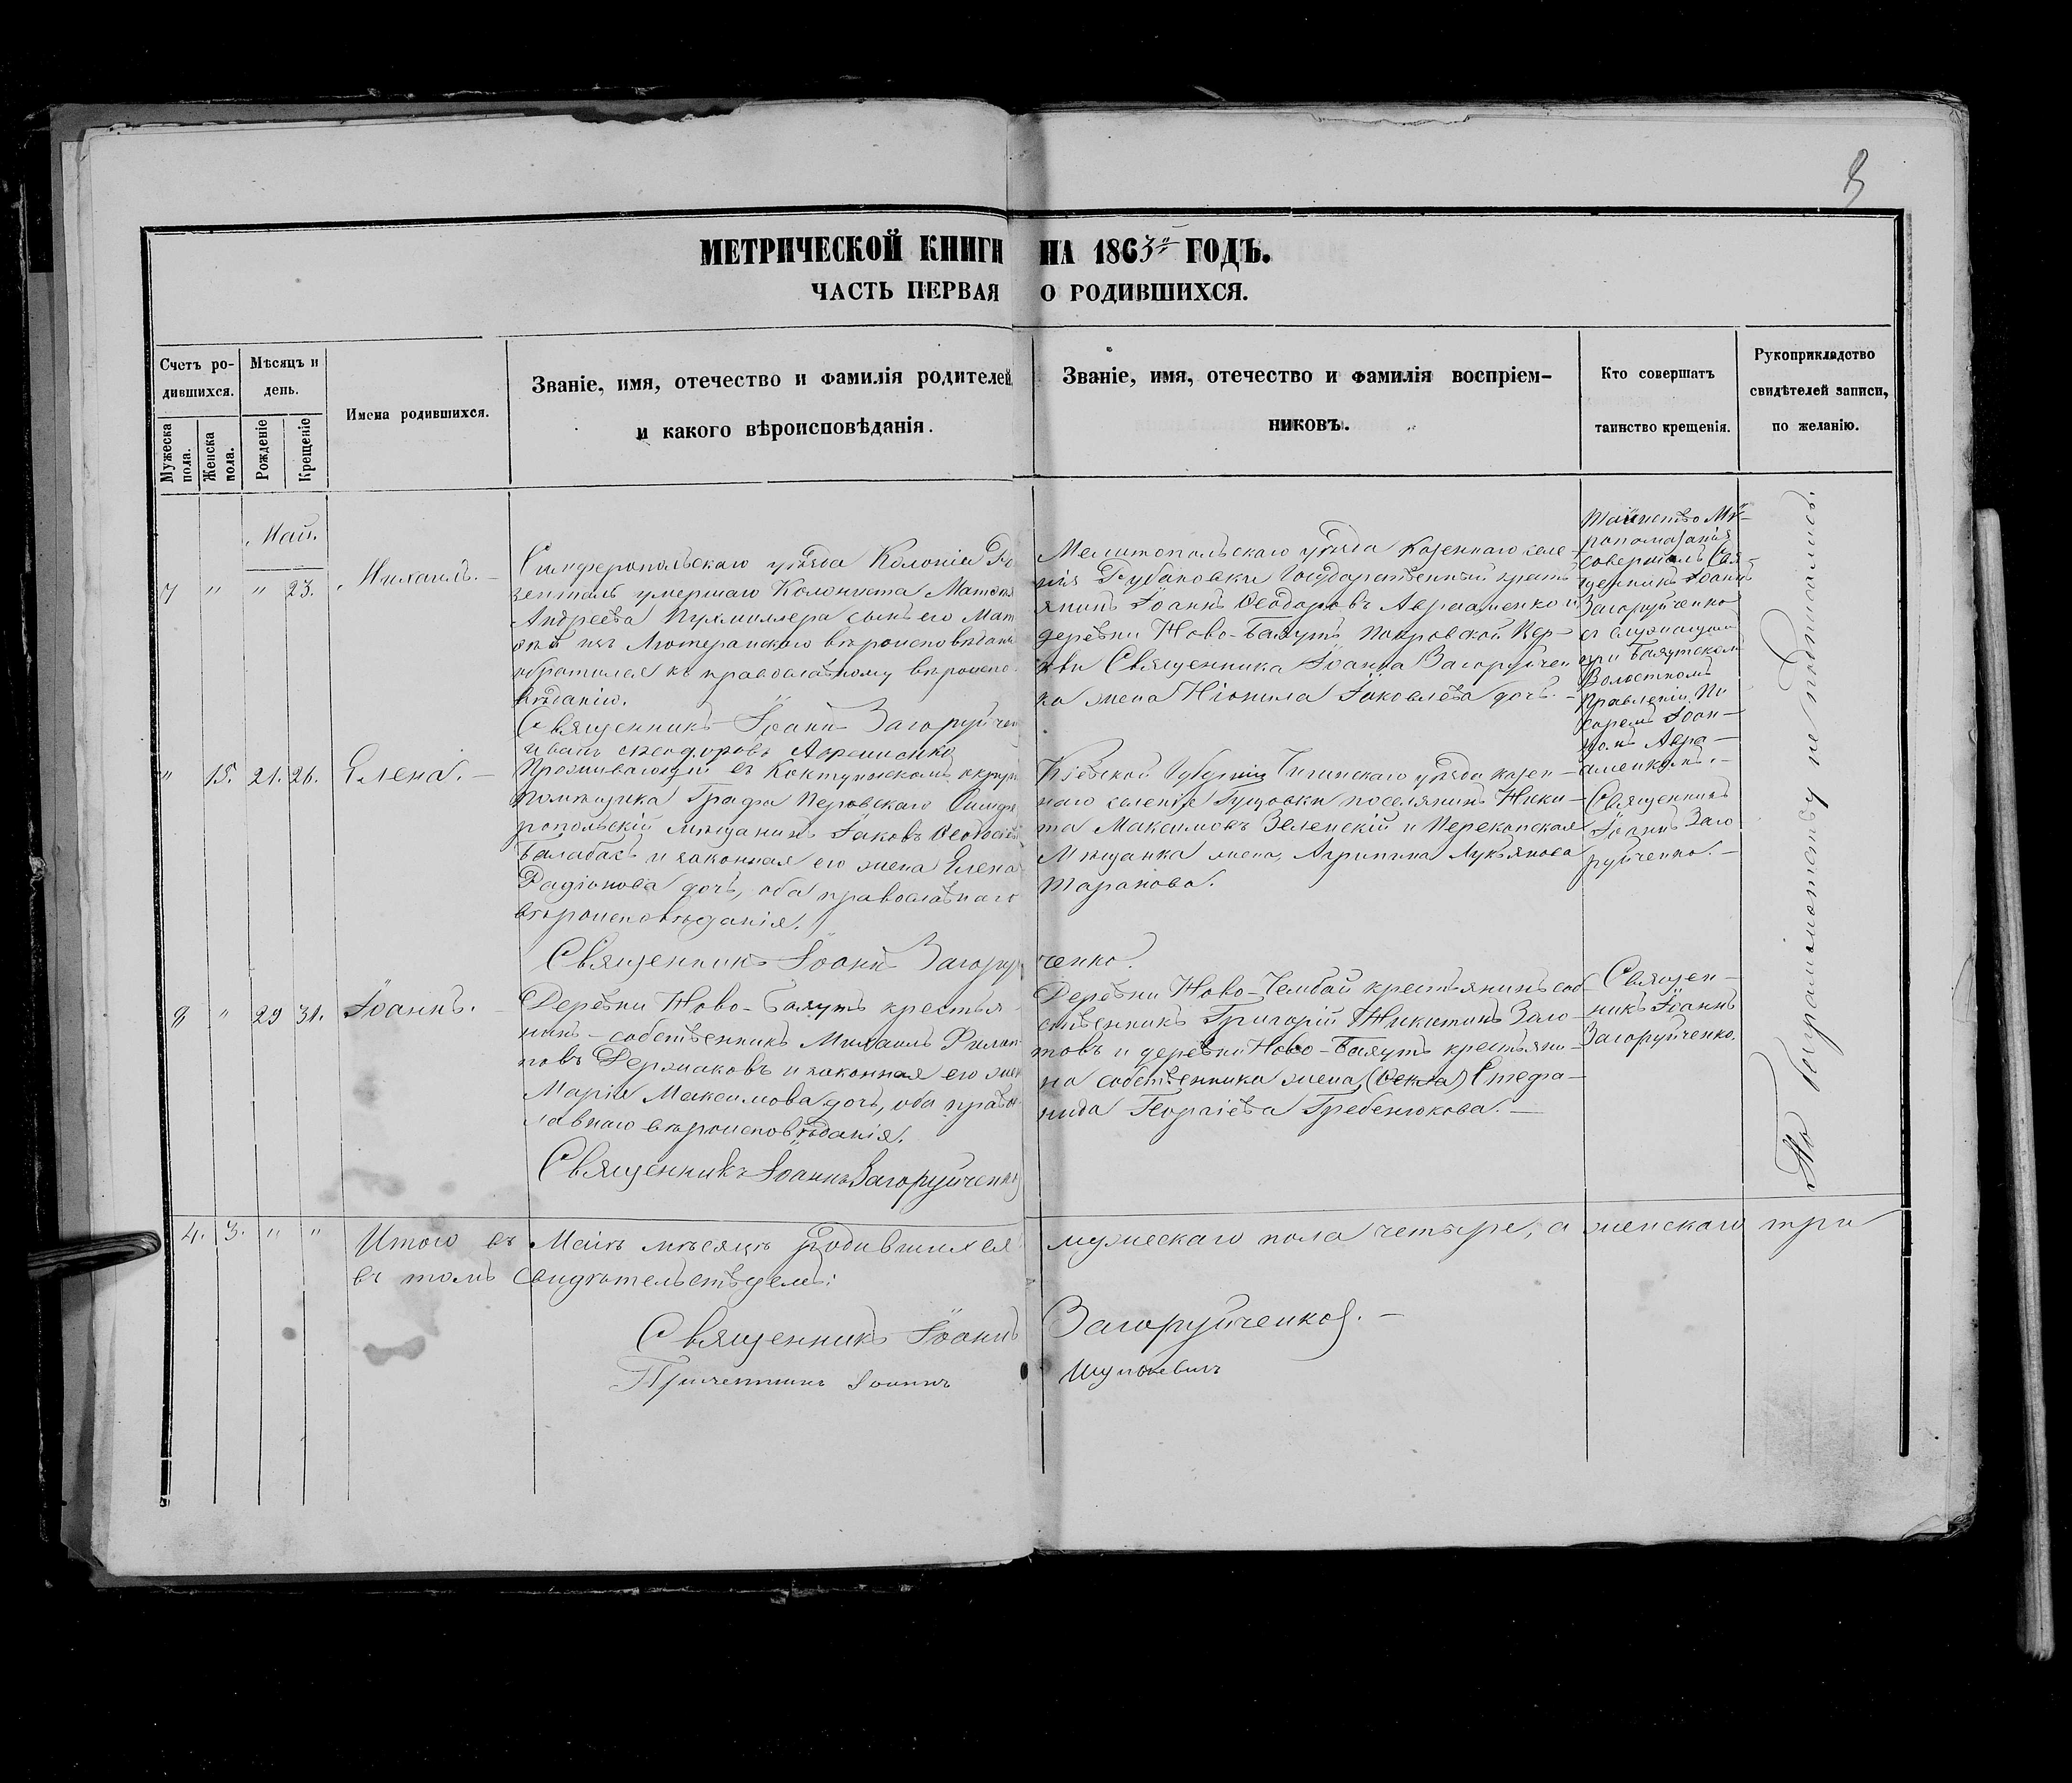 8
МЕТРИЧЕСКОЙ КНИГИ НА 1863й ГОДЪ.
ЧАСТЬ ПЕРВАЯ О РОДИВШИХСЯ.
Счетъ ро-
дившихся.
Мужеска
пола.
Женска
пола.
Мѣсяцъ и
день.
Рожденіе
Крещеніе
Имена родившихся.
Званіе, имя, отечество и фамилія родителей
и какого вѣроисповѣданія.
Званіе, имя, отечество и фамилія воспріем-
никовъ.
Кто совершатъ
таинство крещенія.
Рукоприкладство
свидѣтелей записи,
по желанію.
Май.
7 " " 23. Михаилъ. –
Симферопольскаго уѣзда Колоніи Ро
зенталь умершаго Колониста
Андреева сынъ его Мат
ѳей изъ Лютеранскаго вѣроисповѣдан
обратился къ православному вѣроиспо
вѣданію.
Священникъ Іоаннъ Загоруйчен
Иванъ Ѳеодоровъ Авраменко
Мелитопольскаго уѣзда казеннаго селе-
нія Рубановки Государственный кресть
янинъ Іоаннъ Ѳеодоровъ Авраменко и
деревни Ново-Баяутъ Покровской Цер-
кви Священника Іоанна Загоруйчен
ка жена Неонила Іаковлева дочь. –
Таинство Мѵ-
ропомазанія
совершалъ Свя-
щенникъ Іоаннъ
Загоруйченко
съ служащимъ
при Баяутскомъ
Волостномъ
Правленіи Пи
саремъ Іоан-
номъ Авра-
аменкомъ. –
" 15. 21. 26. Елена. –
Проживающій въ округѣ
помѣщика Графа Перовскаго Симфе
ропольскій мѣщанинъ Іаковъ Ѳеодосіев
Балабасъ и законная его жена Елена
Радіонова дочь, оба православнаго
вѣроисповѣданія.
Священникъ Іоаннъ Загоруйченко.
Кіевской Губерніи Чигинскаго уѣзда казен-
наго селенія поселянинъ Ники-
та Максимовъ Зеленскій и Перекопская
Мѣщанка жена, Агрипина Лукьянова
Таранова.
Священникъ
Іоаннъ Заго
руйченко. –
8 " 29 31. Іоаннъ. –
Деревни Ново-Баяутъ крестья
нинъ-собственникъ Михаилъ Филип
повъ Держаковъ и законная его жен
Марія Максимова дочь, оба право
лавнаго вѣроисповѣданія.
Священникъ Іоаннъ Загоруйченко
Деревни Ново-Чембай крестьянинъ соб
ственникъ Григорій Никитинъ Заго-
товъ и деревни Ново-Баяутъ крестьяни-
на собственника жена, (Ѳекла) Стефа-
нида Георгіева Гребенюкова. –
Священ-
никъ Іоаннъ
Загоруйченко.
По безграмотству не подписались.
4. 3. " " Итого въ Маѣ мѣсяцѣ родившихся мужескаго пола четыре, а женскаго три
въ томъ свидѣтельствуемъ:
Священникъ Іоаннъ Загоруйченко. –
Причетникъ Іоаннъ